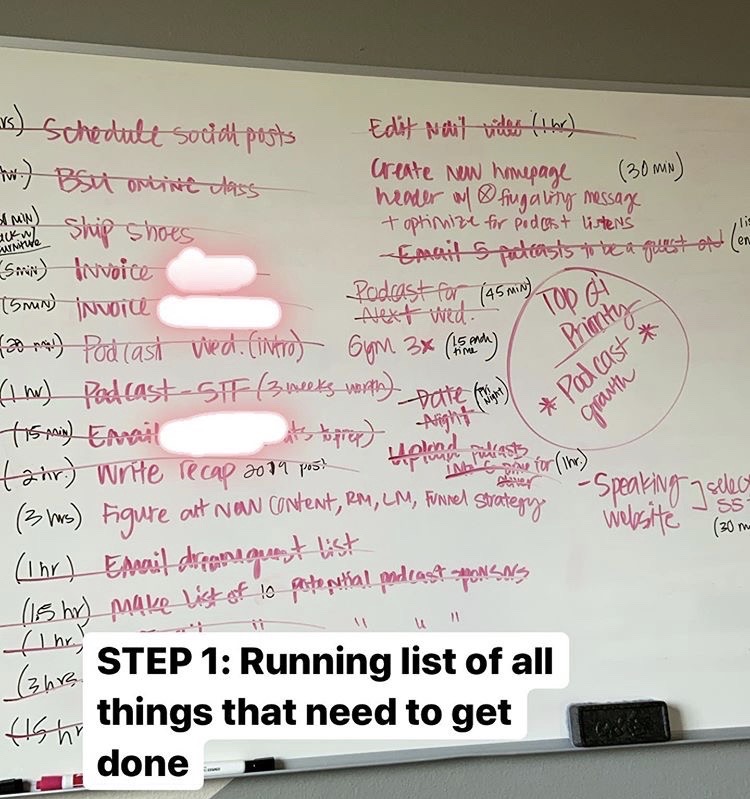 Schedule social posts
BSU online class
Ship Shoes
(5min) Invoice
(5min) Invoice
Podcast Wed. (intro)
(1 hr) Podcast - STF (3 weeks worth)
(15 min) Email to prep)
(2hr.) Write recap 2019 post
(3 hrs) Figure out New Content, RM, LM, Funnel Strategy
(1hr) Email dream guest list
(1.5 hr) Make list of 10 potential podcast sponsors
(1 hr) " " "
(3hrs
(1.5 hr
Edit Nail video (1hr)
Create New homepage (30 MIN)
header w/ frugality message
+ optimize for podcast listens
Email 5 podcasts to be a guest on
Podcast for (45 min)
Next Wed.
Gym 3x (15 each time)
Date Night (Fri Night)
Upload podcasts (1hr.)
Top Q1
Priority
* Podcast *
growth
- Speaking
website
(30 m
STEP 1: Running list of all
things that need to get
done